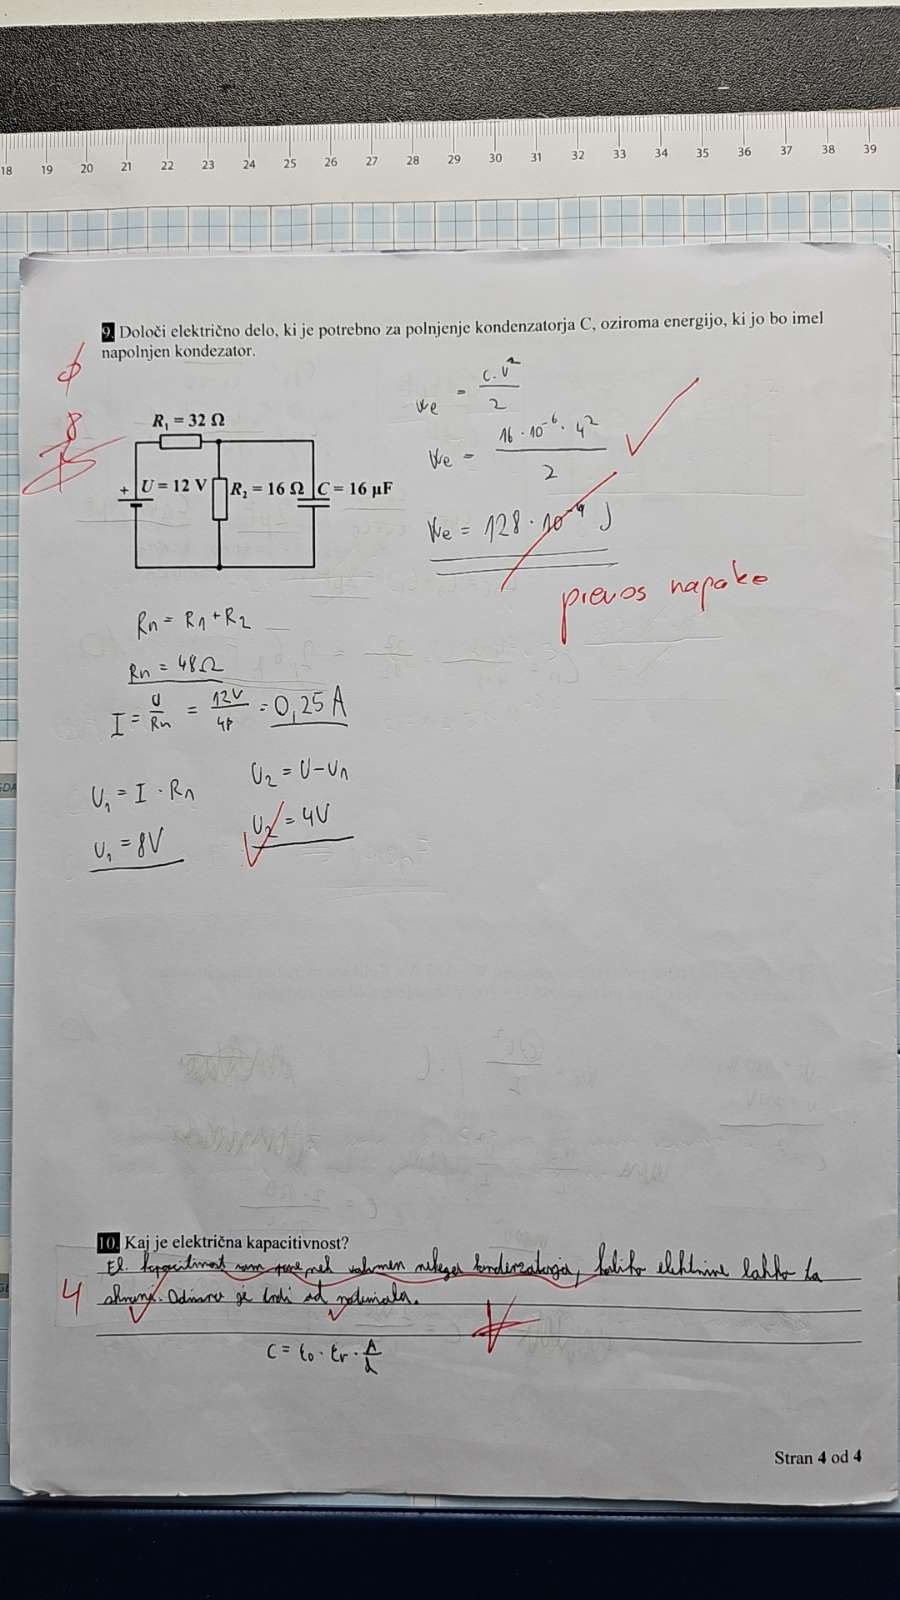 18 19 20 21 22 23 24 25 26 27 28 29 30 31 32 33 34 35 36 37 38 39
9. Določi električno delo, ki je potrebno za polnjenje kondenzatorja C, oziroma energijo, ki jo bo imel
napolnjen kondezator.
We = C·U²/2
8
R₁ = 32 Ω
We = 16·10⁻⁶·4²/2
+ U = 12 V R₂ = 16 Ω C = 16 µF
We = 128·10⁻⁴ J
prenos napake
Rn = R1 + R2
Rn = 48Ω
I = U/Rn = 12V/48 = 0,25 A
U1 = I · R1
U2 = U - U1
U1 = 8V
U2 = 4V
10. Kaj je električna kapacitivnost?
El. kapacitivnost nam pove nek nekega kondenzatorja, koliko elektrine lahko ta
4 shrani. Odvisna je tudi od materiala.
C = ε0 · εr · A/d
Stran 4 od 4